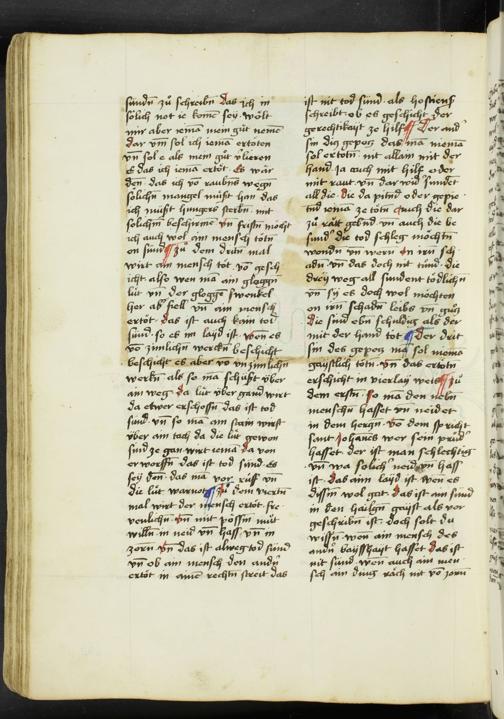 sündñ zů schreibñ das ich in
sölich not ie komẽ sey wölt
mir aber iemã mein gůt nemẽ
dar vm̃ sol ich iemã ertöten
vñ sol e als mein gůt vlieren
es das ich iemã ertöt Es wär
den das ich vö raubns wegñ
solichñ mangel müst han das
ich müst hungers sterbñ mit
solichñ beschirmẽ vñ fristñ möcht
ich auch wol ain mensch tötñ
on sünd zů dem drittñ mal
wirt ain mensch töt võ gesch
icht also wen mã ain gloggñ
lüt vñ der glogge swenkel
her ab fiell vñ ain mensch
ertöt das ist auch kain tod
sünt so es im layd ist won es
võ zimlichñ werckñ beschicht
beschicht es aber võ vnzimlichñ
werckñ als so mã schüst vber
ain weg da lüt vber gand wirt
da etwer erschossñ das ist tod
sünd vñ so mã ain stain wirft
vber ain tach da die lüt gewon
sind ze gan wirt iemã da von
erworffñ das ist tod sünd es
sey den das mã vor rüff vñ
die lüt warne Zů dem viertñ
mal wirt der mensch ertöt fre
venlichñ vñ mit pössñ můt
willñ in neid vñ hass vñ in
zorn vñ das ist alweg tod sünd
vñ ob ain mensch den andñ
ertöt in ainẽ rechtñ streit das
ist nit tod sünd als hostiensis
schreibt ob es geschicht der
gerechtikayt ze hilf Der and
sin diß gepotz das mã niemã
sol ertötñ mit allain mit der
hand ja auch mit hilf oder
mit raut vñ dar wid sündet
all die die da pitnd oder gepie
tnd iemã ze tötñ auch die dar
zů rätt gebnd vñ auch die be
sünd die tod schleg möchtñ
wendñ vñ wern in irñ sch
adñ vñ das doch nit tünd die
drey weg all sündent tödlichñ
vñ sy es doch wol möchten
on irñ schadñ leibs vñ gůtz
die sind ebñ schuldig als der
mit der hand töt Der drit
sin des gepotz mã sol niemã
gaystlich tötñ vñ das ertötñ
erschicht in vierlay weis zů
dem erstñ so mã den nebñ
menschñ hasset vñ neidet
in dem hertzñ võ dem spricht
sant Johanes wer sein prud
hasset der ist man schlechtig
vñ wa sölich neid vñ hass
ist das aim layd ist wen es
dism̃ wol gat das ist ain sünd
in den hailgñ gayst als vor
geschribñ ist doch solt du
wissñ wen ain mensch des
andñ basshayt hasset das ist
nit sünd wen auch ain men
sch ain ding räch nit võ zorn